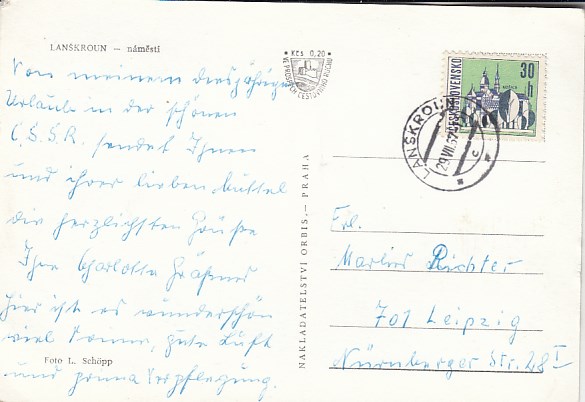 LANŠKROUN – náměstí
Von meinem diesjährigen
Urlaub in der schönen
Č.S.S.R. sendet Ihnen
und ihrer lieben Mutter
die herzlichsten Grüße
Ihre Charlotte
Hier ist es wunderschön
viel Sonne, gute Luft
und prima Verpflegung.
Foto L. Schöpp
Kčs 0,20
VE PROSPĚCH CESTOVNÍHO RUCHU
NAKLADATELSTVÍ ORBIS, – PRAHA
30 h
ČESKOSLOVENSKO
LANŠKROUN
29.VII.67
c
Frl.
Marlies Richter
701 Leipzig
Nürnberger Str. 28 I